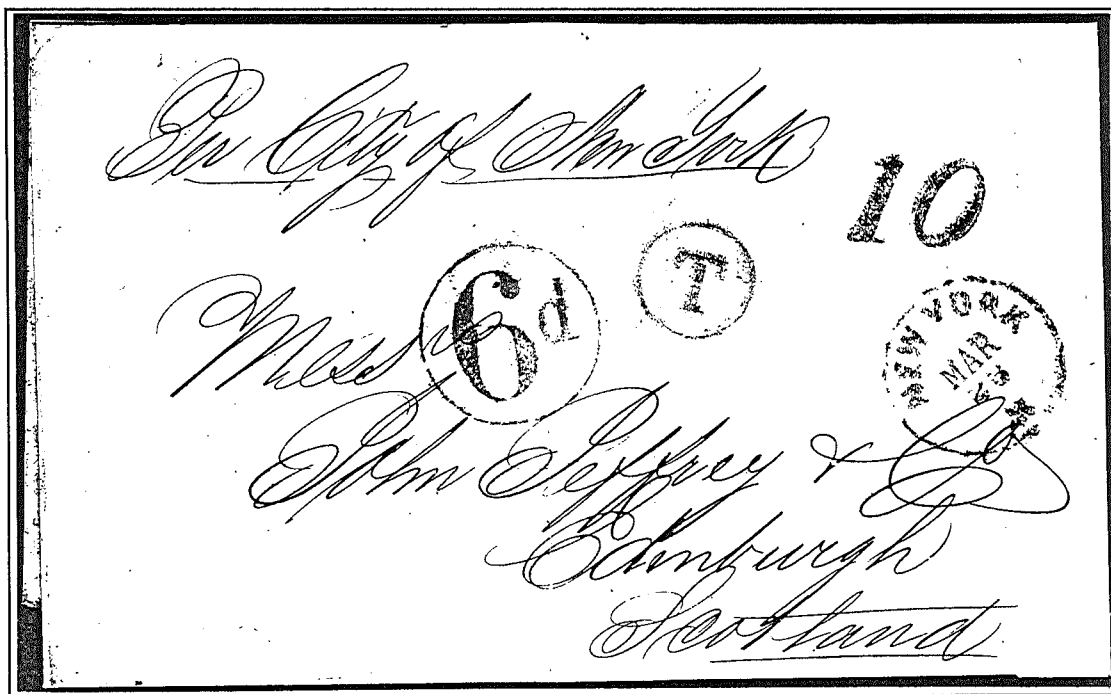 Per City of New York
10
6d
T
NEW YORK
MAR
Messrs
John Jeffrey & Co
Edinburgh
Scotland